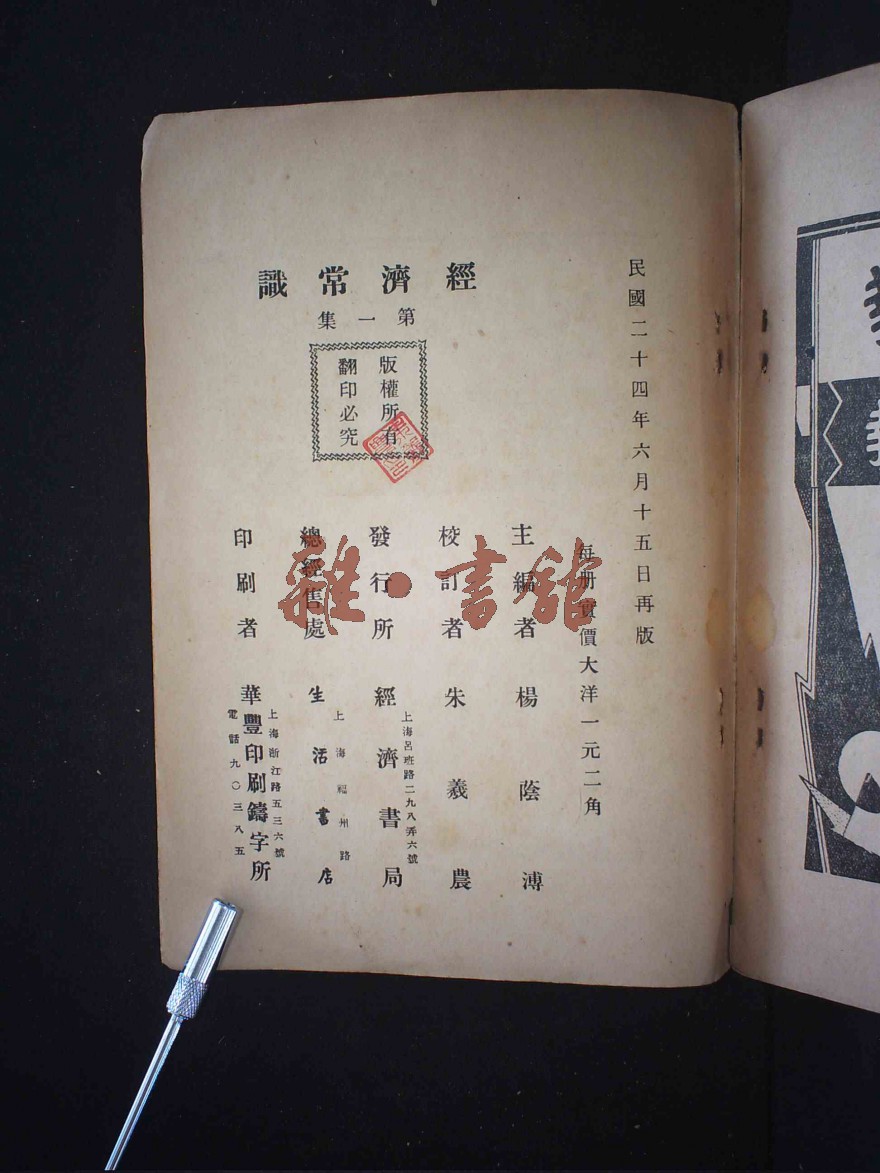 民國二十四年六月十五日再版
每册實價大洋一元二角
經濟常識
第一集
版權所有
翻印必究
主編者 楊蔭溥
校訂者 朱義農
發行所 經濟書局
上海呂班路二九八弄六號
總經售處 生活書店
上海福州路
印刷者 華豐印刷鑄字所
上海浙江路五三六號
電話九〇三八五
雜·書館